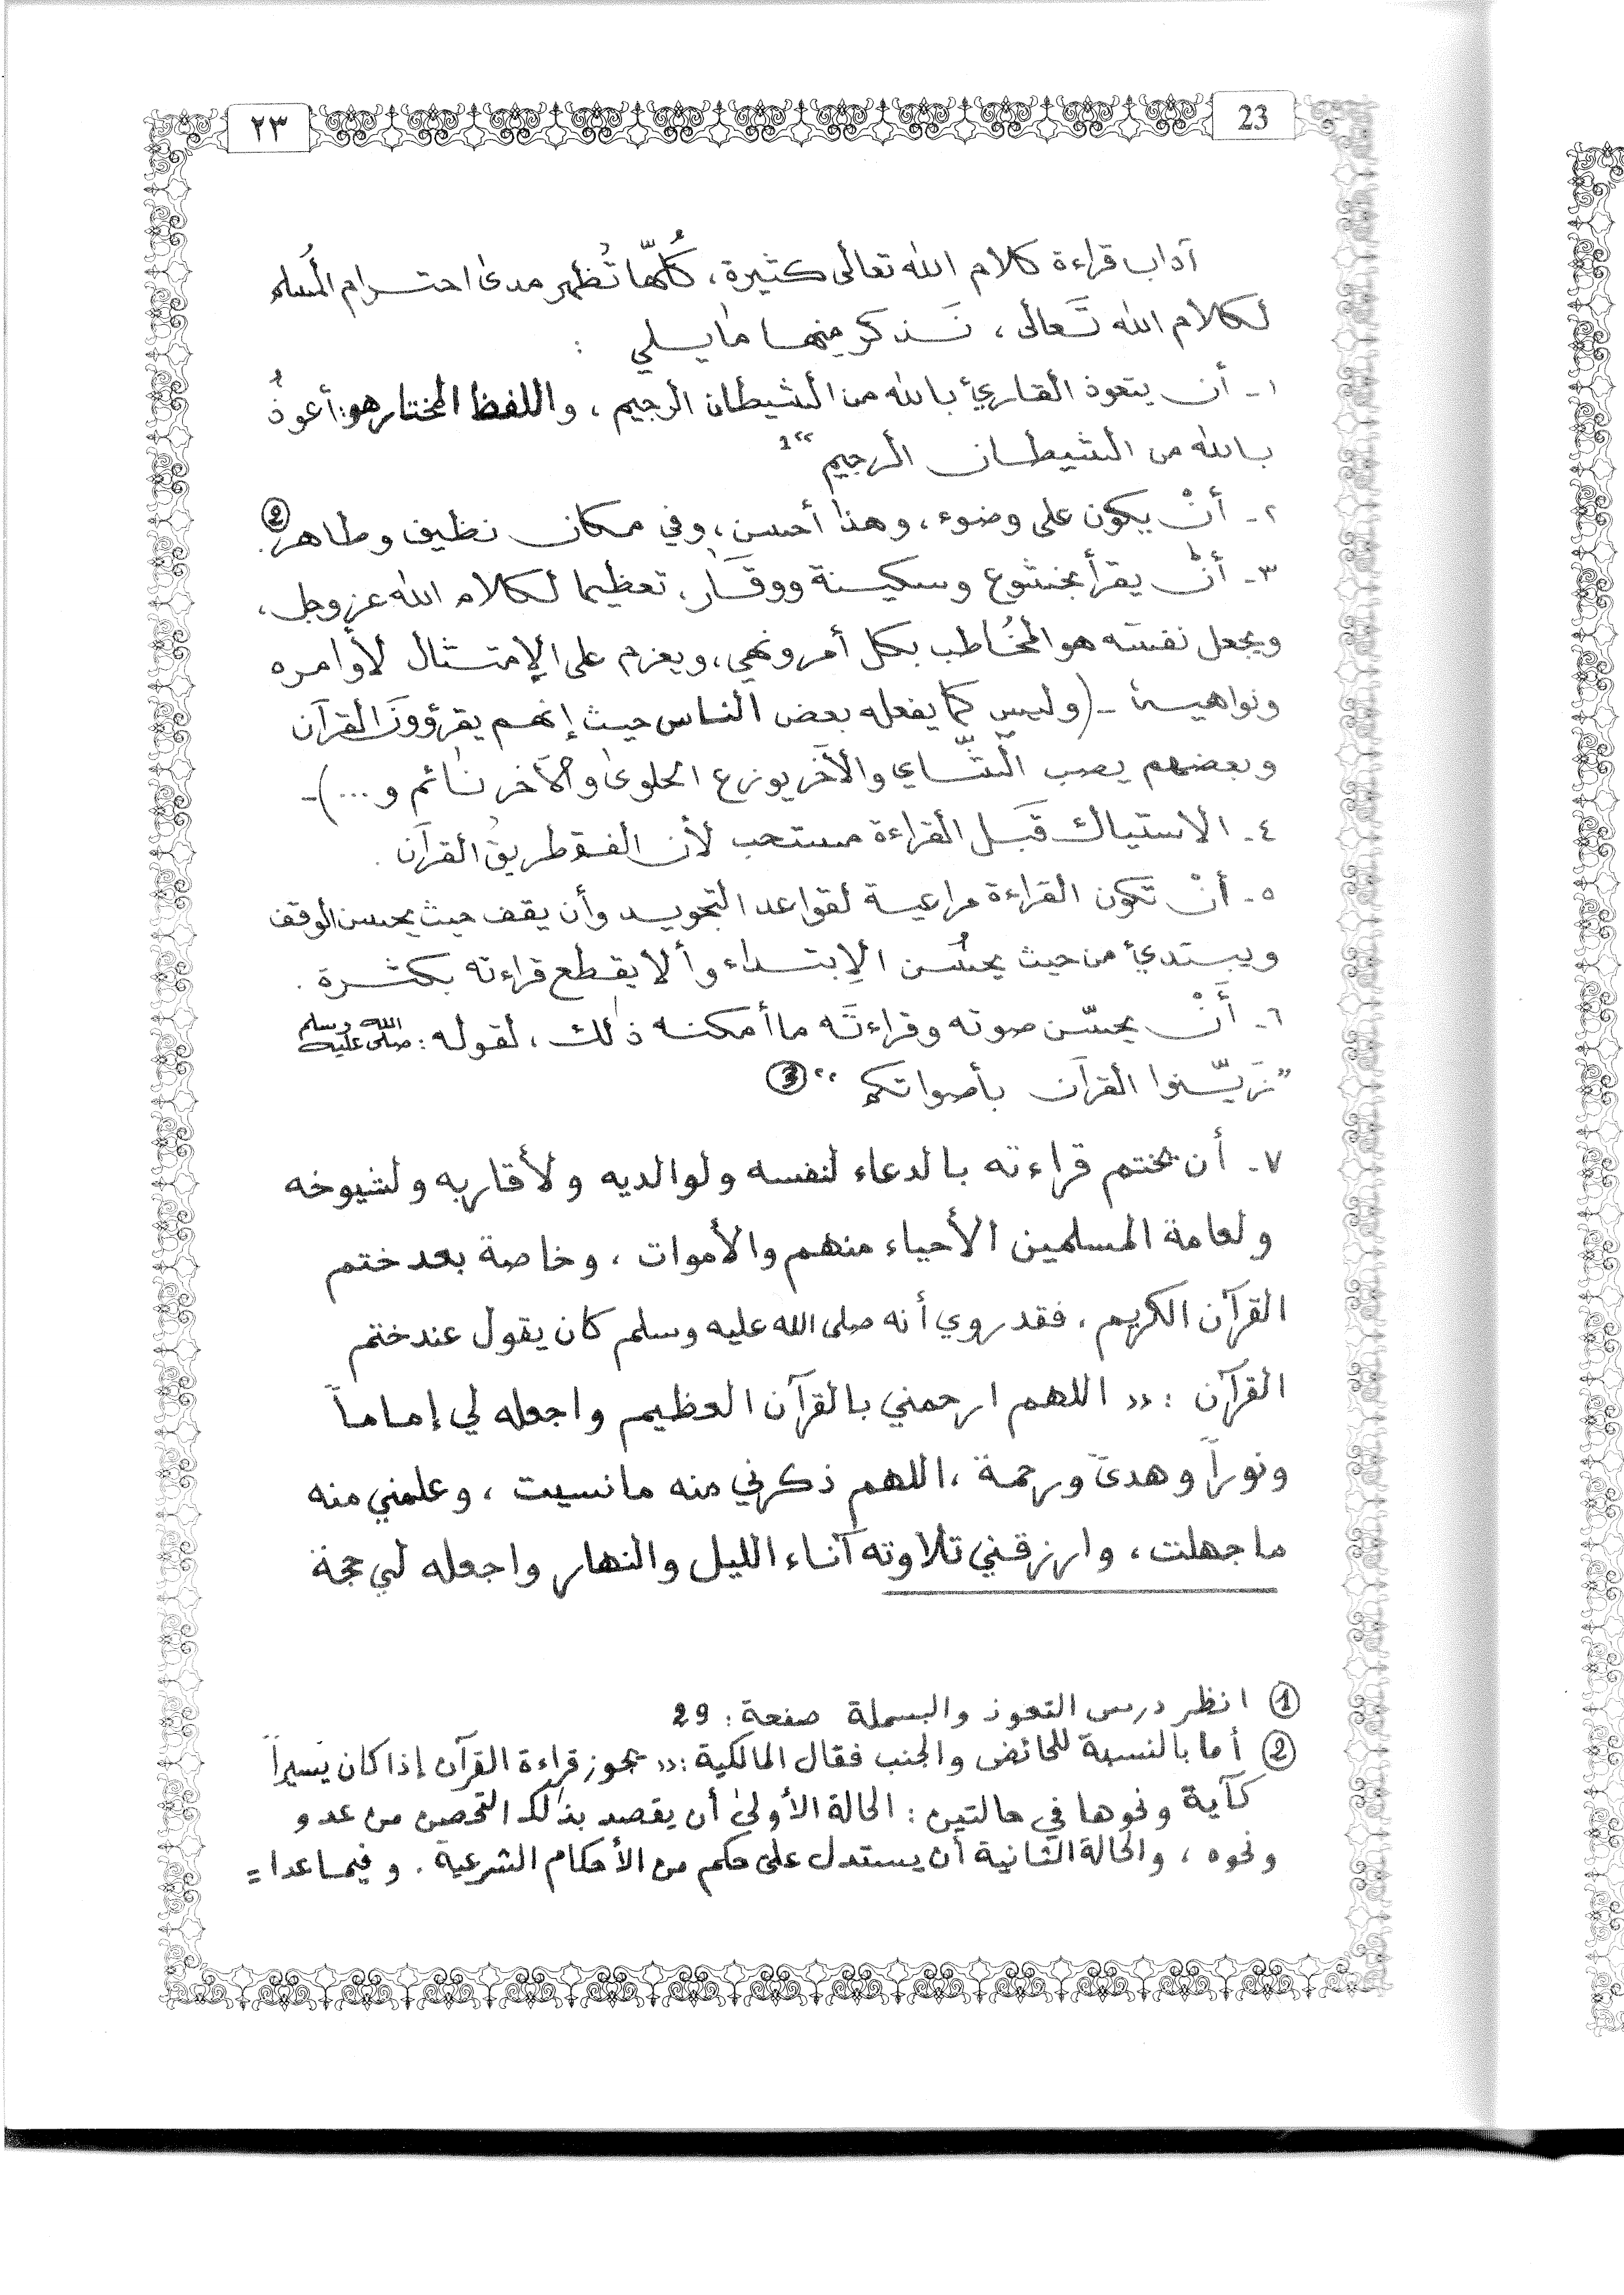 ٢٣
23
آداب قراءة كلام الله تعالى كثيرة، كُلهّا تُظهر مدى احترام المُسلم
لكلام الله تَعالى، نَذكر منها ما يلي :
١- أن يتعوذ القاريُ بالله من الشيطان الرجيم، واللفظ المختار هو: أعوذُ
بالله من الشيطان الرجيم" 1
٢- أنْ يكون على وضوء، وهذا أحسن، وفي مكان نظيف وطاهر. (2)
٣- أنْ يقرأ بخشوع وسكينة ووقَار، تعظيما لكلام الله عز وجل،
ويجعل نفسَه هو المخُاطب بكل أمر ونهي، ويعزم على الإمتثال لأوامره
ونواهيه - (وليس كما يفعله بعض الناس حيث إنهم يقرؤونَ القرآن
وبعضهم يصب الشّاي والآخر يوزع الحلوى والآخر نائم و...)-
٤- الاستياك قَبل القراءة مستحب لأن الفم طريق القرآن .
٥- أنْ تَكون القراءة مراعية لقواعد التجويد وأن يقف حيث يحسن الوقف
ويبتدئ من حيث يحسُن الإبتداء وألا يقطع قراءته بكثرة .
٦- أَنْ يحسّن صوته وقراءتَه ما أمكنه ذلك، لقوله: صلى الله عليه وسلم
"زَيّنوا القرآن بأصواتكم" (3)
٧- أن يختم قراءته بالدعاء لنفسه ولوالديه ولأقاربه ولشيوخه
ولعامة المسلمين الأحياء منهم والأموات، وخاصة بعد ختم
القرآن الكريم، فقد روي أنه صلى الله عليه وسلم كان يقول عند ختم
القرآن : « اللهم ارحمني بالقرآن العظيم واجعله لي إماماً
ونوراً وهدىً ورحمة، اللهم ذكرني منه ما نسيت، وعلمني منه
ما جهلت، وارزقني تلاوته آناء الليل والنهار واجعله لي حجة
(1) انظر درس التعوذ والبسملة صفحة: 29
(2) أما بالنسبة للحائض والجنب فقال المالكية: « يجوز قراءة القرآن إذا كان يسيراً
كآية ونحوها في حالتين: الحالة الأولى أن يقصد بذلك التحصن من عدو
ونحوه، والحالة الثانية أن يستدل على حكم من الأحكام الشرعية. وفيما عدا =